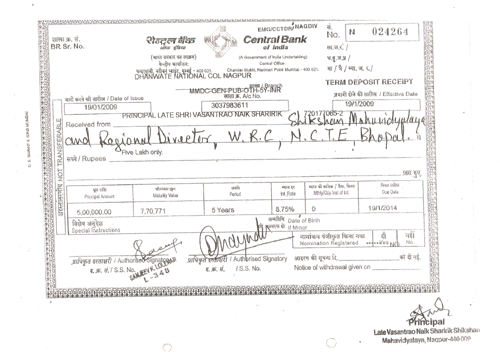 EMC/CCTDR/NAGDIV
शाखा क्र. सं.
BR Sr. No.
सेन्ट्रल बैंक
ऑफ इंडिया
Central Bank
of India
No. N 024264
(भारत सरकार का उपक्रम)
केन्द्रीय कार्यालय
(A Government of India Undertaking)
Central Office
Chander Mukhi, Nariman Point Mumbai - 400 021.
DHANWATE NATIONAL COL NAGPUR
MMDC-GEN-PUB-OTH-5Y-INR
TERM DEPOSIT RECEIPT
जारी करने की तारीख / Date of Issue
खाता क्र. A/c No.
प्रभावी होने की तारीख / Effective Date
19/01/2009
3037983611
19/1/2009
PRINCIPAL LATE SHRI VASANTRAO NAIK SHARIRIK
720177065-2
Received from
Shikshan Mahavidyalaya
and Regional Director, W.R.C, N.C.T.E, Bhopal.
Five Lakh only.
रुपये / Rupees
NOT TRANSFERABLE
मूल राशि
Principal Amount
परिपक्वता मूल्य
Maturity Value
अवधि
Period
ब्याज दर
Int. Rate
Due Date
5,00,000.00
7,70,771
5 Years
8.75%
0
19/1/2014
विशेष अनुदेश
Special Instructions
Date of Birth
If Minor
नामांकन पंजीकृत किया गया
Nomination Registered
हाँ
Yes
नहीं
No
प्राधिकृत हस्ताक्षरी / Authorised Signatory
प्राधिकृत हस्ताक्षरी / Authorised Signatory
ह.क्र. सं. / S.S. No.
ह.क्र. सं. / S.S. No.
Notice of withdrawal given on
L-348
Principal
Late Vasantrao Naik Sharirik Shikshan
Mahavidyalaya, Nagpur-440 009